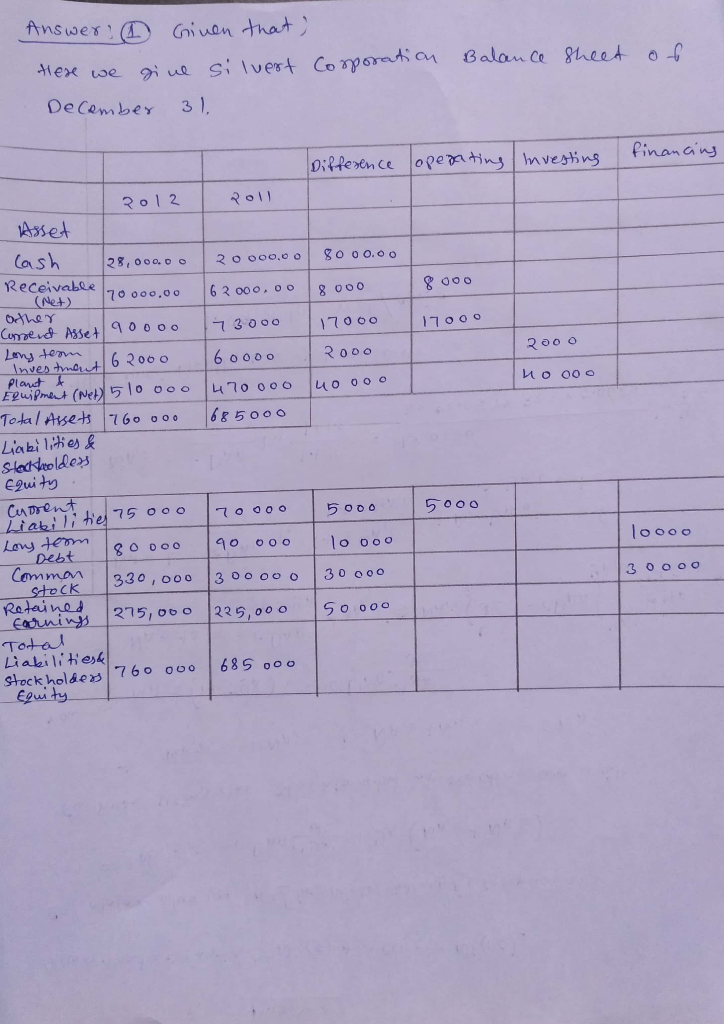 Answer: ① Given that;
Here we give Silvert Corporation Balance Sheet of
December 31.
Difference operating Investing financing
2012 2011
Asset
Cash 28,000.00 20 000.00 8000.00
Receivable (Net) 70 000.00 62000.00 8 000 8000
other Current Asset 90000 73000 17000 17000
Long term Investment 62000 60000 2000 2000
Plant & Equipment (Net) 510 000 470 000 40 000 40 000
Total Assets 760 000 685000
Liabilities &
Stockholders
Equity
Current Liabilities 75 000 70000 5000 5000
Long term Debt 80 000 90 000 10 000 10000
Common stock 330,000 300000 30 000 30000
Retained Earnings 275,000 225,000 50,000
Total
Liabilities &
Stockholders 760 000 685 000
Equity